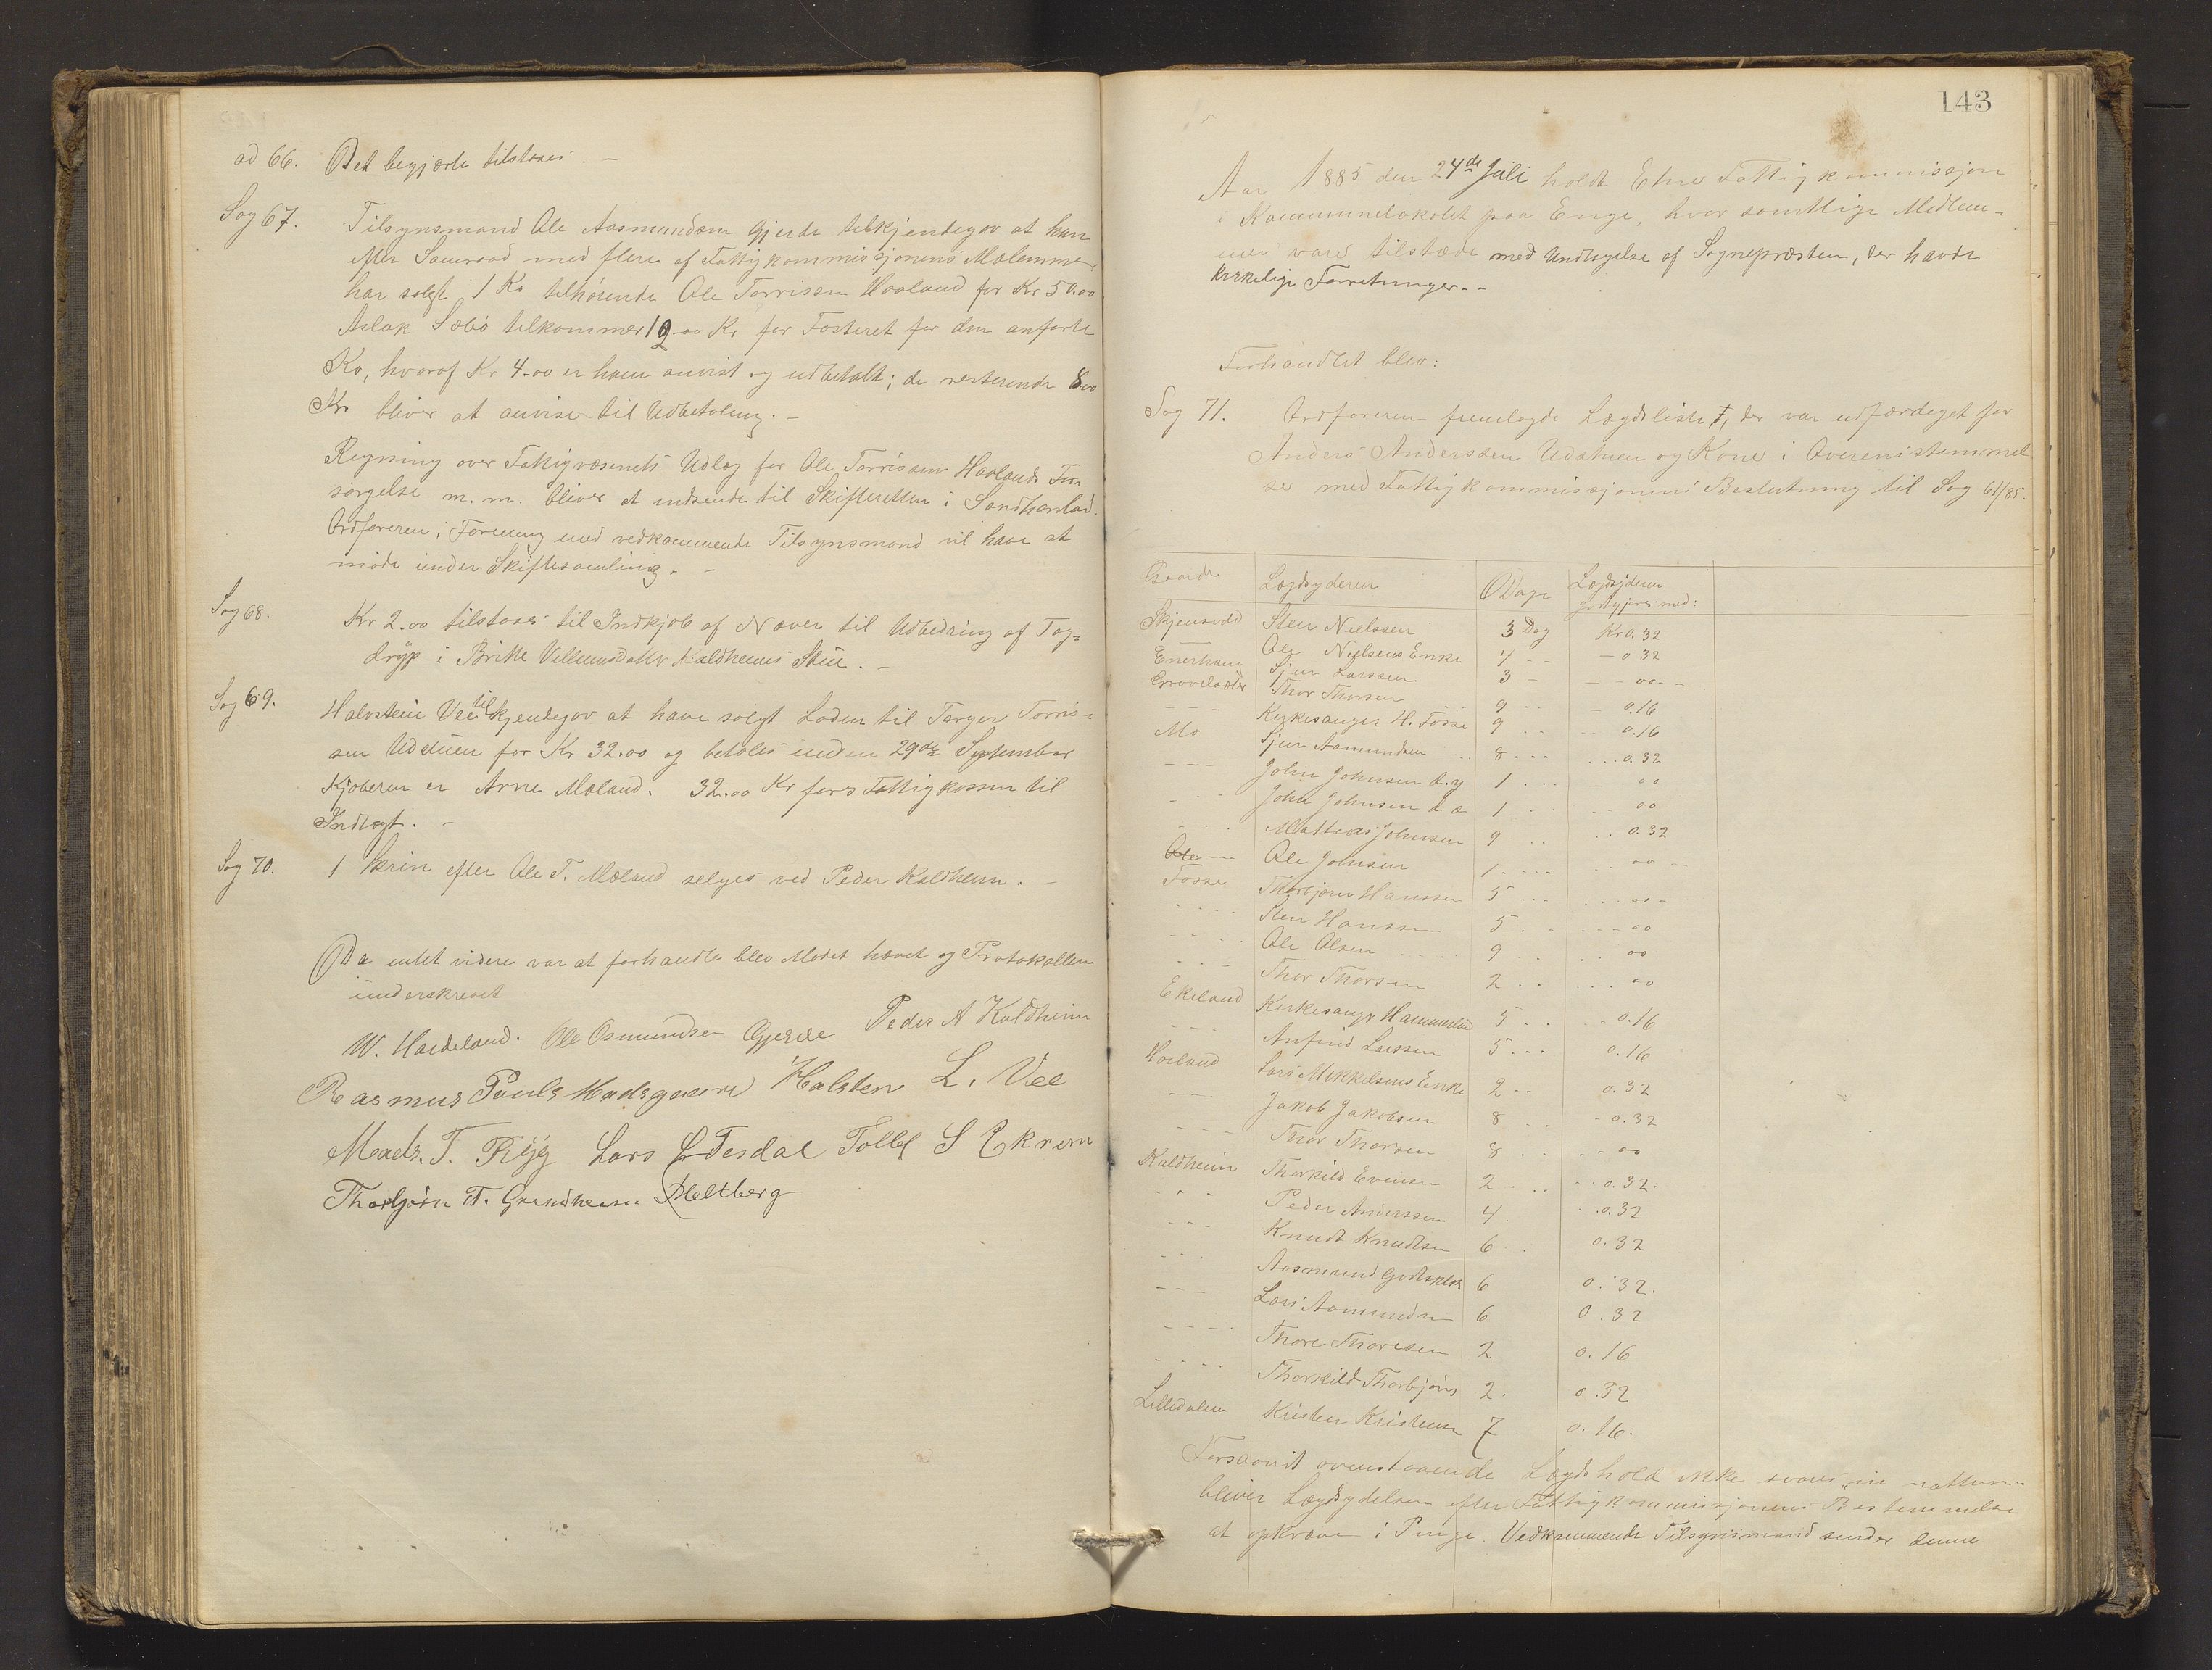 ad 66. Det begjærte tilstaaes. —
Sag 67. Tilsynsmand Ole Aasmundsen Gjerde tilkjendegav at han
efter Samraad med flere af Fattigkommissjonens Mølemmer
har solgt 1 Ko tilhørende Ole Torrissen Haaland for Kr 50.00
Aslak Sæbø tilkommer 12.00 Kr for Fosteret for den anførte
Ko, hvoraf Kr 4.00 er ham anvist og udbetalt; de resterende 8.00
Kr bliver at anvise til Udbetaling. —
Regning over Fattigvæsenets Udlæg for Ole Torrissen Haalands For-
sørgelse m. m. bliver at indsende til Skifteretten i Søndhordland.
Ordføreren i Forening med vedkommende Tilsynsmand vil have at
møde under Skiftesamling. —
Sag 68. Kr 2.00 tilstaaes til Indkjøb af Næver til Udbedring af Tag=
dryp i Brithe Villumsdatter Kaldheims Stue. —
Sag 69. Halvstein Vee tilkjendegav at have solgt Laden til Torger Torris=
sen Udstuen for Kr 32.00 og betales inden 29de September
Kjøberen er Arne Mæland. 32.00 Kr føres Fattigkassen til
Indtægt. —
Sag 70. 1 Skrin efter Ole T. Mæland selges ved Peder Kaldheim. —
Da intet videre var at forhandle blev Mødet hævet og Protokollen
underskrevet
W. Hardeland. Ole Osmundsen Gjerde Peder A Kaldheim
Rasmus Pauls Halsten L. Vee
Mads. T. Ryg Lars L Tesdal Tollef S Ekrem
Thorbjørn T. Grindheim. Heltberg
143
Aar 1885 den 24de Juli holdt Etne Fattigkommissjon
i Kommunelokalet paa Enge, hvor samtlige Medlem-
mer vare tilstæde med Undtagelse af Sognepræsten, der havde
kirkelige Forretninger. -
Forhandlet blev:
Sag 71. Ordføreren fremlagde Lægdsliste, der var udfærdiget for
Anders Anderssen Udstuen og Kone i Overensstemmel
se med Fattigkommissjonens Beslutning til Sag 61/85.
Gaarde Lægdsyderen Dage Lægdsyderen godtgjøres med:
Skjensvold Sten Nielssen 3 Dag Kr 0.32
Enerhaug Ole Nielsens Enke 4 - - — 0 32
Grovelæter Sjur Larssen 3 - - - 00 - -
- - - Thor Thorsen 9 - - - 0.16
Mo Kirkesanger H. Fosse 9 - - - 0.16
- - - Sjur Aamundsen 8 - - - - - - 0.32
- - - John Johnsen d. y 1 - - - - 00
- - - John Johnsen d æ 1 - - - - 00
Mathias Johnsen 9 - - - - 0.32
Ole Johnsen 1 - - - - 00 - -
Fosse Thorbjørn Hanssen 5 - - - - - - 00 -
- - - Sten Hanssen 5 - - - - - 00
- - - Ole Olsen 9 - - - - 00
- - - Thor Thorsen 2 - - - - - 00
Ekeland Kirkesanger Hammerland 5 - - - 0.16
- - - Anfind Larssen 5 - - - 0.16
Høiland Lars Mikkelsens Enke 2 - - 0.32
- - - Jakob Jakobsen 8 - - - 0.32
- - - Thor Thorsen 8 - - - - 00
Kaldheim Thorkild Evensen 2 - - - - 0.32 -
- - - Peder Anderssen 4. - 0.32
- - - Knudt Knudtsen 6 - - 0.32
- - - Aasmund 6 0.32.
- - - Lars Aamundsen 6 0.32
- - - Thore Thoresen 2 0.16
- - - Thorkild Thorbjørns 2. 0.32
Lilledalen Kristen Kristensen 7 0.16.
Forsaavidt ovenstaaende Lægdshold ikke svares in natura
bliver Lægdsydelsen efter Fattigkommissjonens Bestemmelse
at opkræve i Penge. Vedkommende Tilsynsmand sender denne